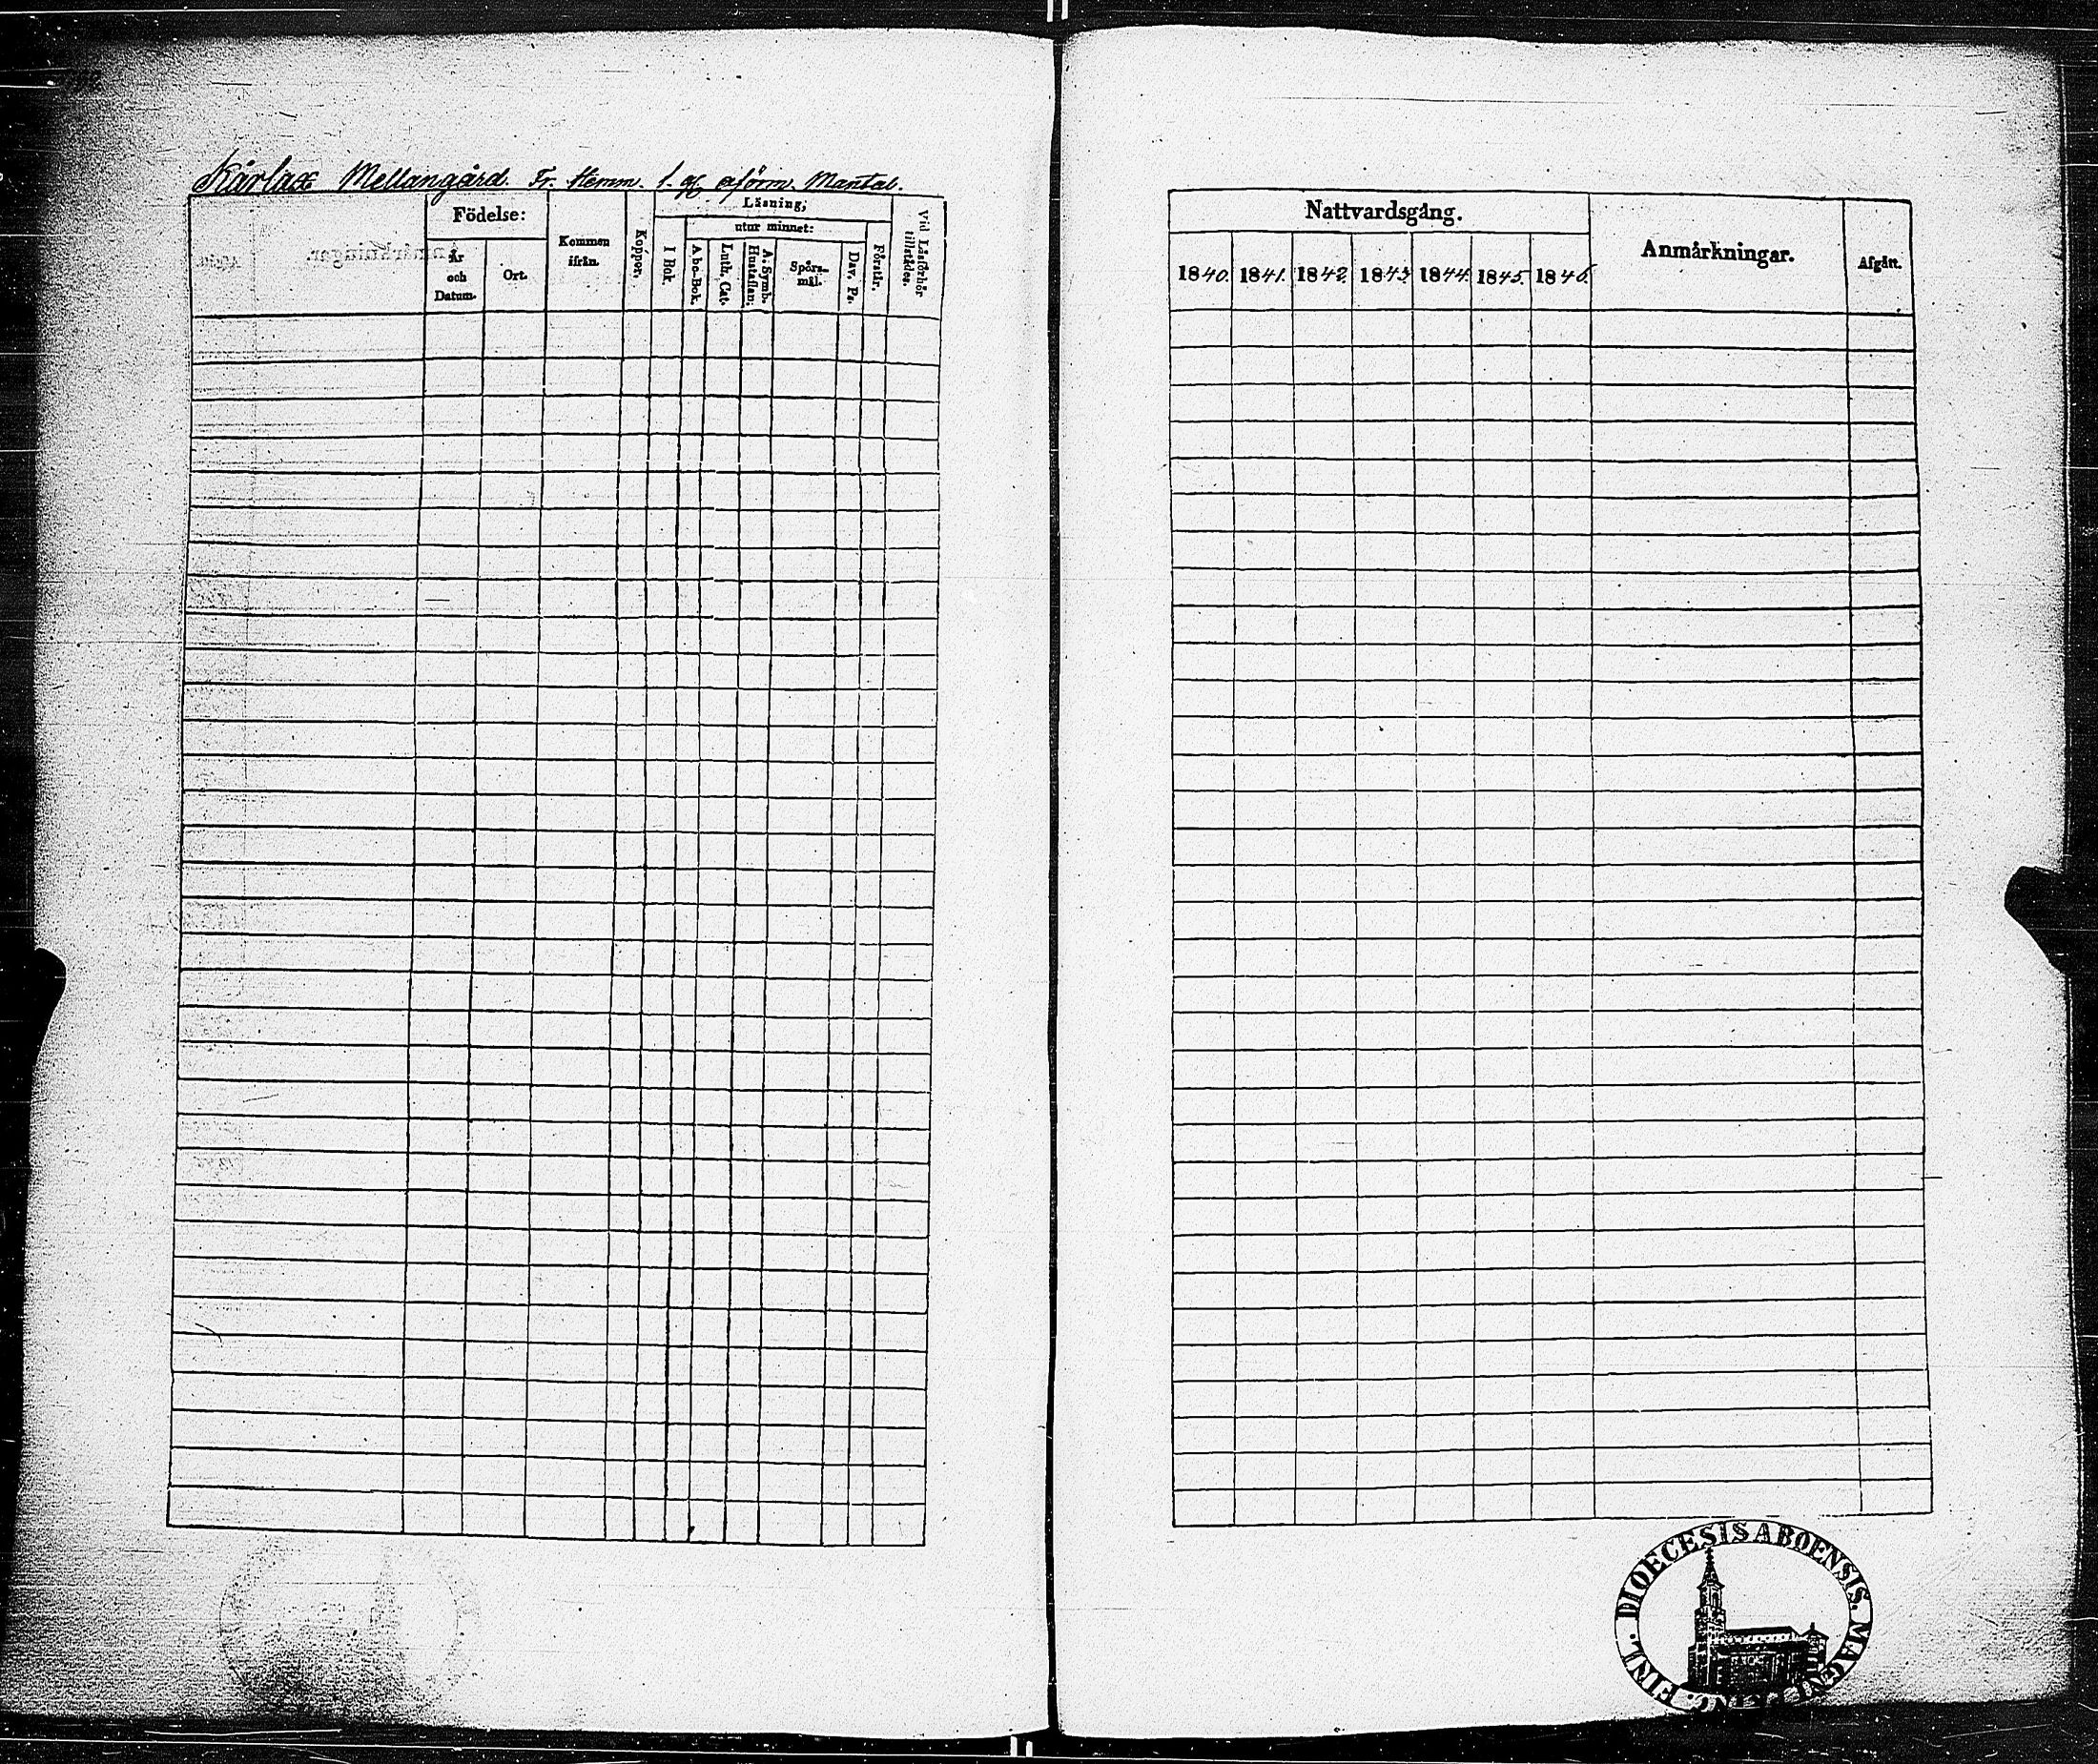 Kårlax Mellangård. Fr. Hemm. 1. oförm. Mantal.
Födelse:
År och Datum.
Ort.
Kommen ifrån.
Koppor.
Läsning;
I Bok.
utur minnet:
Abc-Bok.
Luth. Cat.
A. Symb. Hustaflan:
Spörs-mål.
Dav. Ps.
Förstår.
Vid Läsförhör tillstädes.
Nattvardsgång.
1840. 1841. 1842. 1843. 1844. 1845. 1846.
Anmärkningar.
Afgått.
FINL. DIOECESIS ABOENSIS. MAGNI